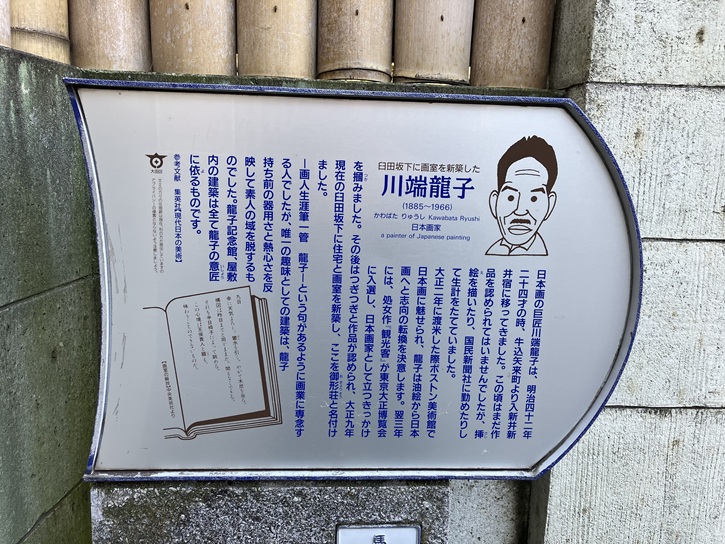 臼田坂下に画室を新築した
川端龍子
(1885～1966)
かわばた りゅうし Kawabata Ryushi
日本画家
a painter of Japanese painting
日本画の巨匠川端龍子は、明治四十二年
二十四才の時、牛込矢来町より入新井新
井宿に移ってきました。この頃はまだ作
品を認められてはいませんでしたが、挿
絵を描いたり、国民新聞社に勤めたりし
て生計をたてていました。
大正二年に渡米した際ボストン美術館で
日本画に魅せられ、龍子は油絵から日本
画へと志向の転換を決意します。翌三年
には、処女作「観光客」が東京大正博覧会
に入選し、日本画家として立つきっかけ
を掴みました。その後はつぎつぎと作品が認められ、大正九年
現在の臼田坂下に住宅と画室を新築し、ここを御形荘と名付け
ました。
―画人生涯筆一管 龍子―という句があるように画業に専念す
る人でしたが、唯一の趣味としての建築は、龍子
持ち前の器用さと熱心さを反
映して素人の域を脱するも
のでした。龍子記念館、屋敷
内の建築は全て龍子の意匠
に依るものです。
参考文献 集英社現代日本の美術
大田区